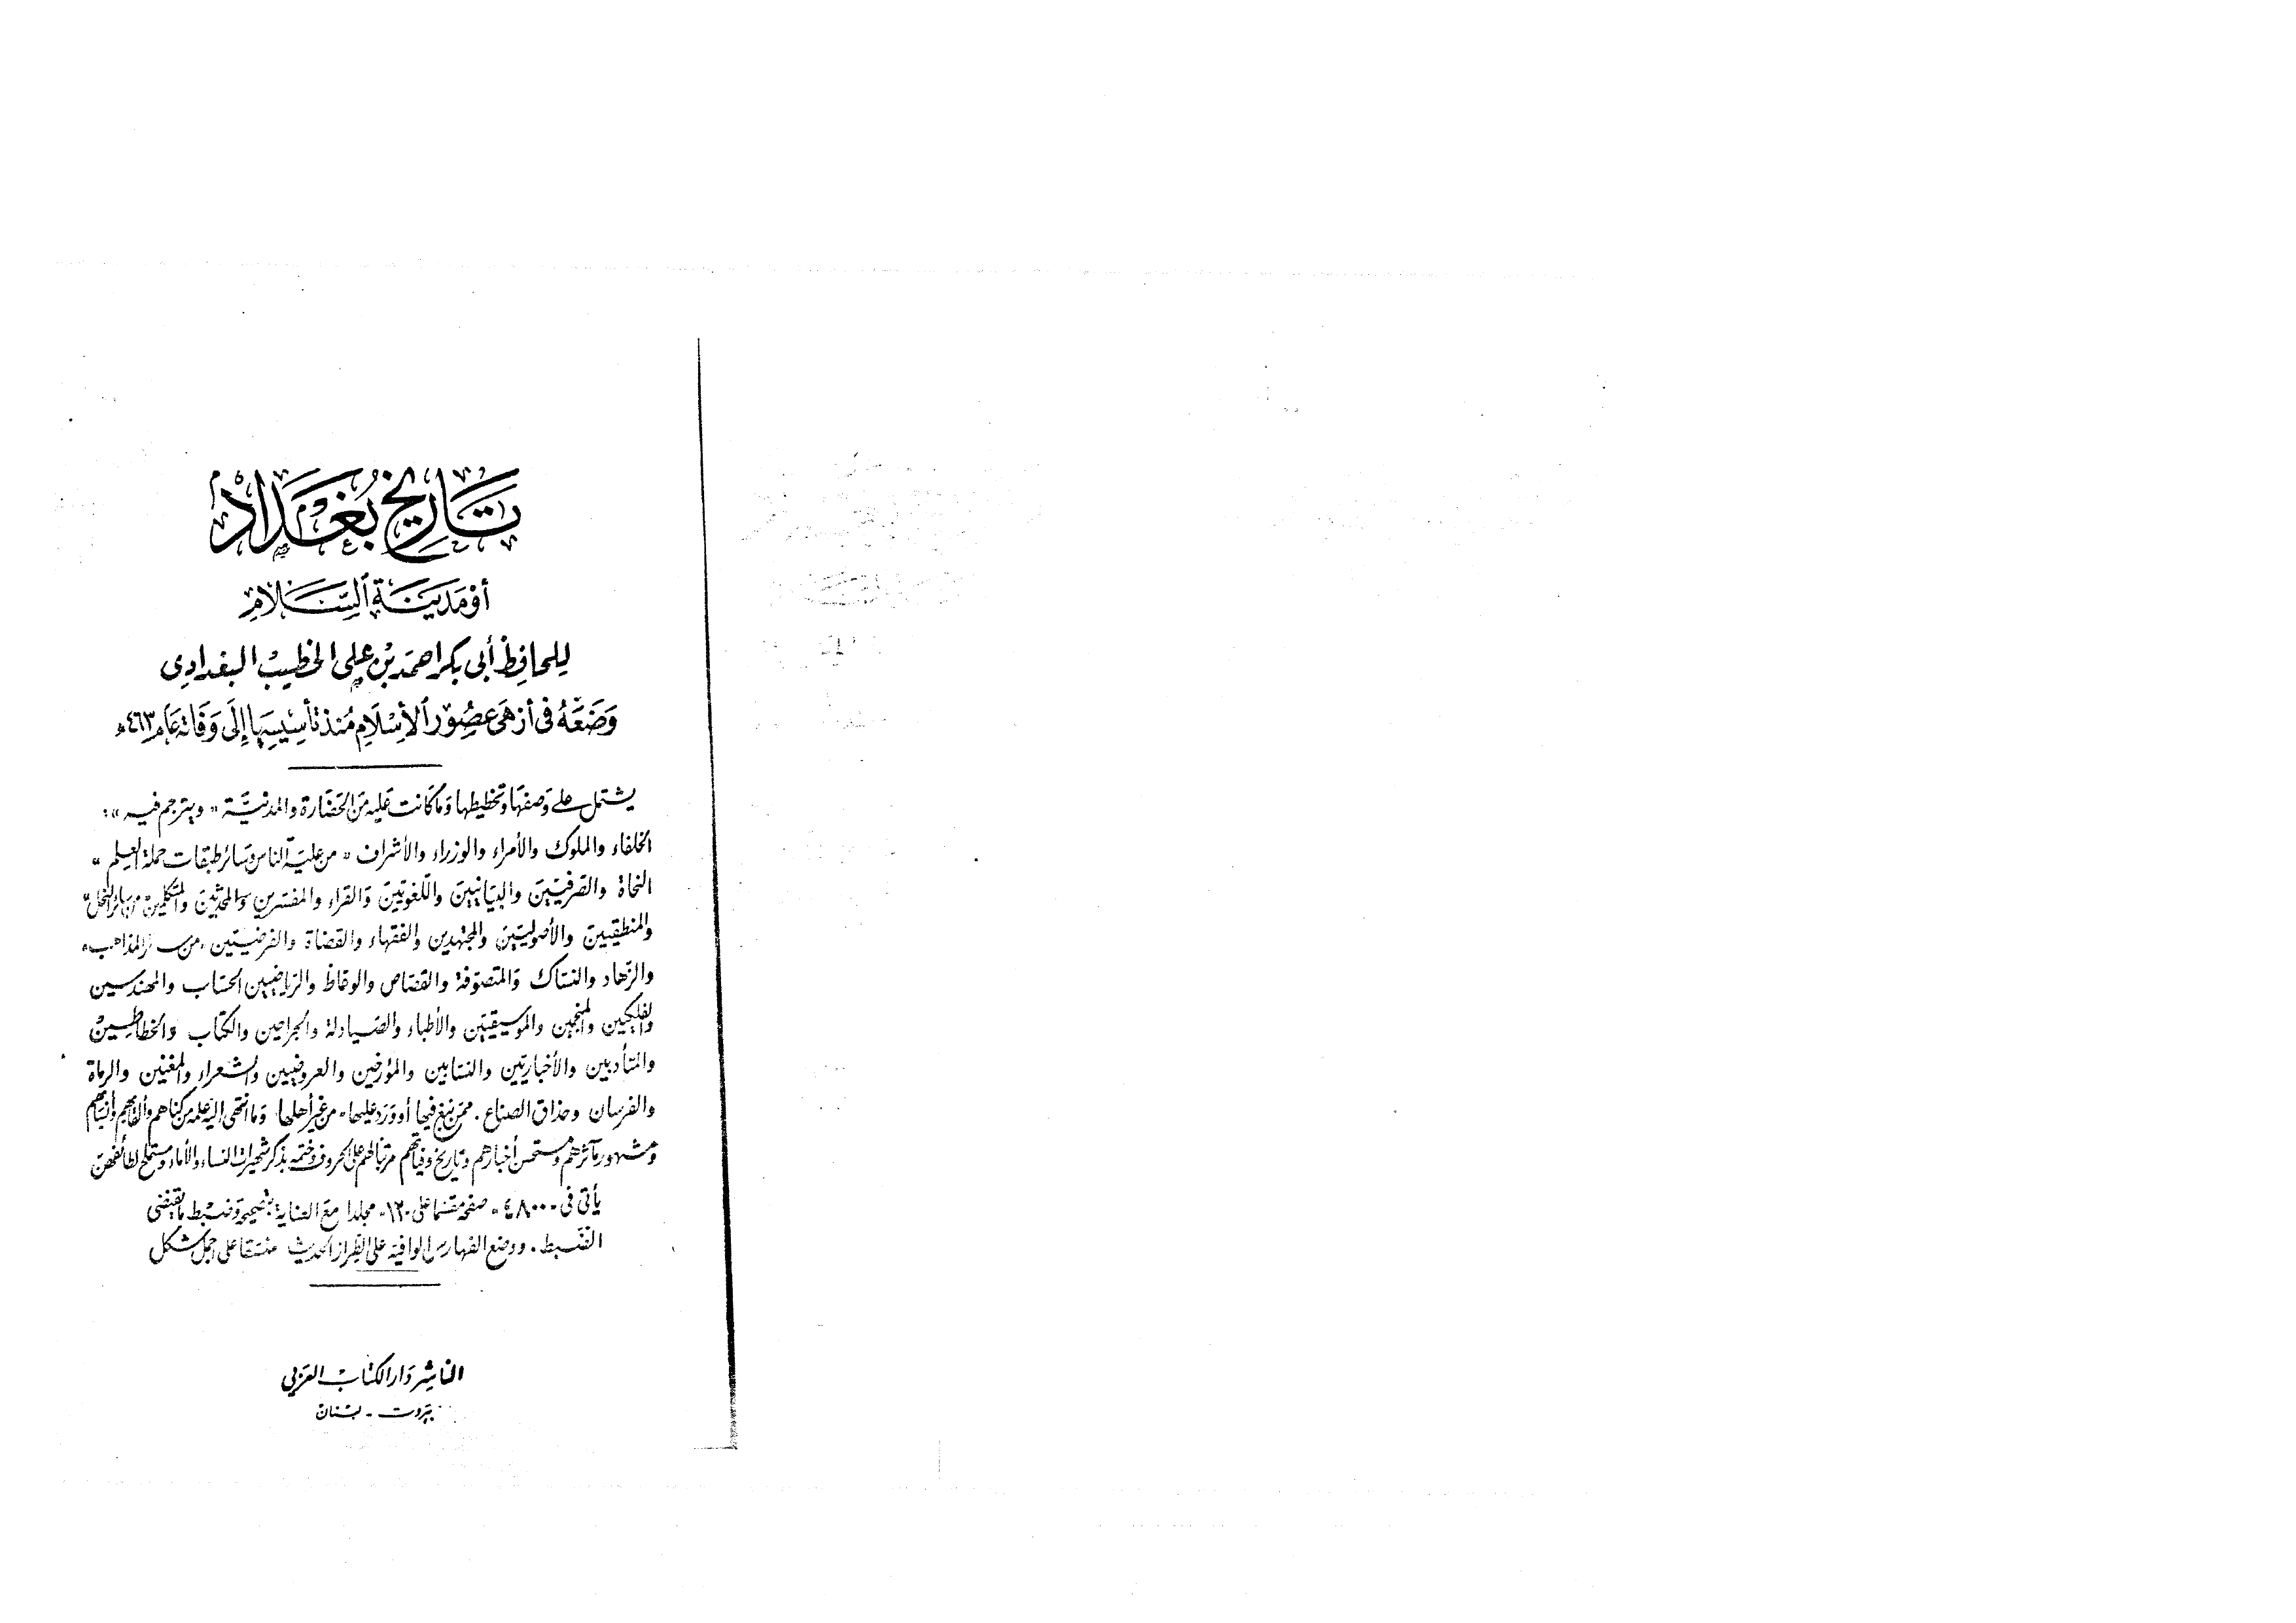 تَاريخ بُغَدَاد
أوْ مَدينَة السَّلَام
لِلحافِظ أبى بكر احمَد بْن على الخطيبْ البغدادِى
وَضَعَهُ فى أزهَى عصُور الأسْلَامِ مُنذ تأسِيسِهَا إلَى وَفَاته عَام ٤٦٣ هـ
يشتمل على وَصفهَا وتخطيطها وَمَا كَانت عَليه مَن الحَضَارة والمدنيَّة « ويترجم فيه » :
الخلفاء والملوك والأمراء والوزراء والأشراف « من عليَة الناس وسَائر طبقات حملة العِلم »
النحاة والصَرفيّيَن والبيَانييَن واللّغويّيَن وَالقراء والمفسّرين وَالمحدثيَن والمتكلمينَ من سائر النحل»
والمنطقييَن والأصوليّيَن والمجتهدين والفقهاء والقضاة والفرضيّين «من سائر المذاهب»
والزّهاد والنسّاك وَالمتصوّفة والقصّاص والوعّاظ والريَاضيين الحسّاب والمهندسين
والفلكيين والمنجمين والموسيقيَين والأطباء والصَيادلة والجراحين والكتاب وَالخطاطيينْ
والمتأدبين والأخباريّين والنسّابين والمؤرخين والعروضيين والشعراء والمغنين والرماة
والفرسان وحذاق الصناع . ممّن نبغ فيها أو وَرَد عليها « من غير أهلها » وَما انتهى إليه علمه من كناهم وألقابهم وأنسَابهم
ومشهور مآثرهم ومستحسن أخبارهم وتاريخ وفياتهم مرتبا لهم على الحروف وختمه بذكر شهيرات النساء والأماء ومستملح لطائفهنّ
يأتى فى «٤٨٠٠٠» صفحة مقسّما على «١٢» مجلدا مع العناية بتصحيحه وَضبْط ما يقتضى
الضَبط . ووضع الفهارسِ الوافية على الطراز الحديث منسّقا على أجمل شكل
الناشِر دَار الكتابْ العَرَبى
بيَروت - لبْنان